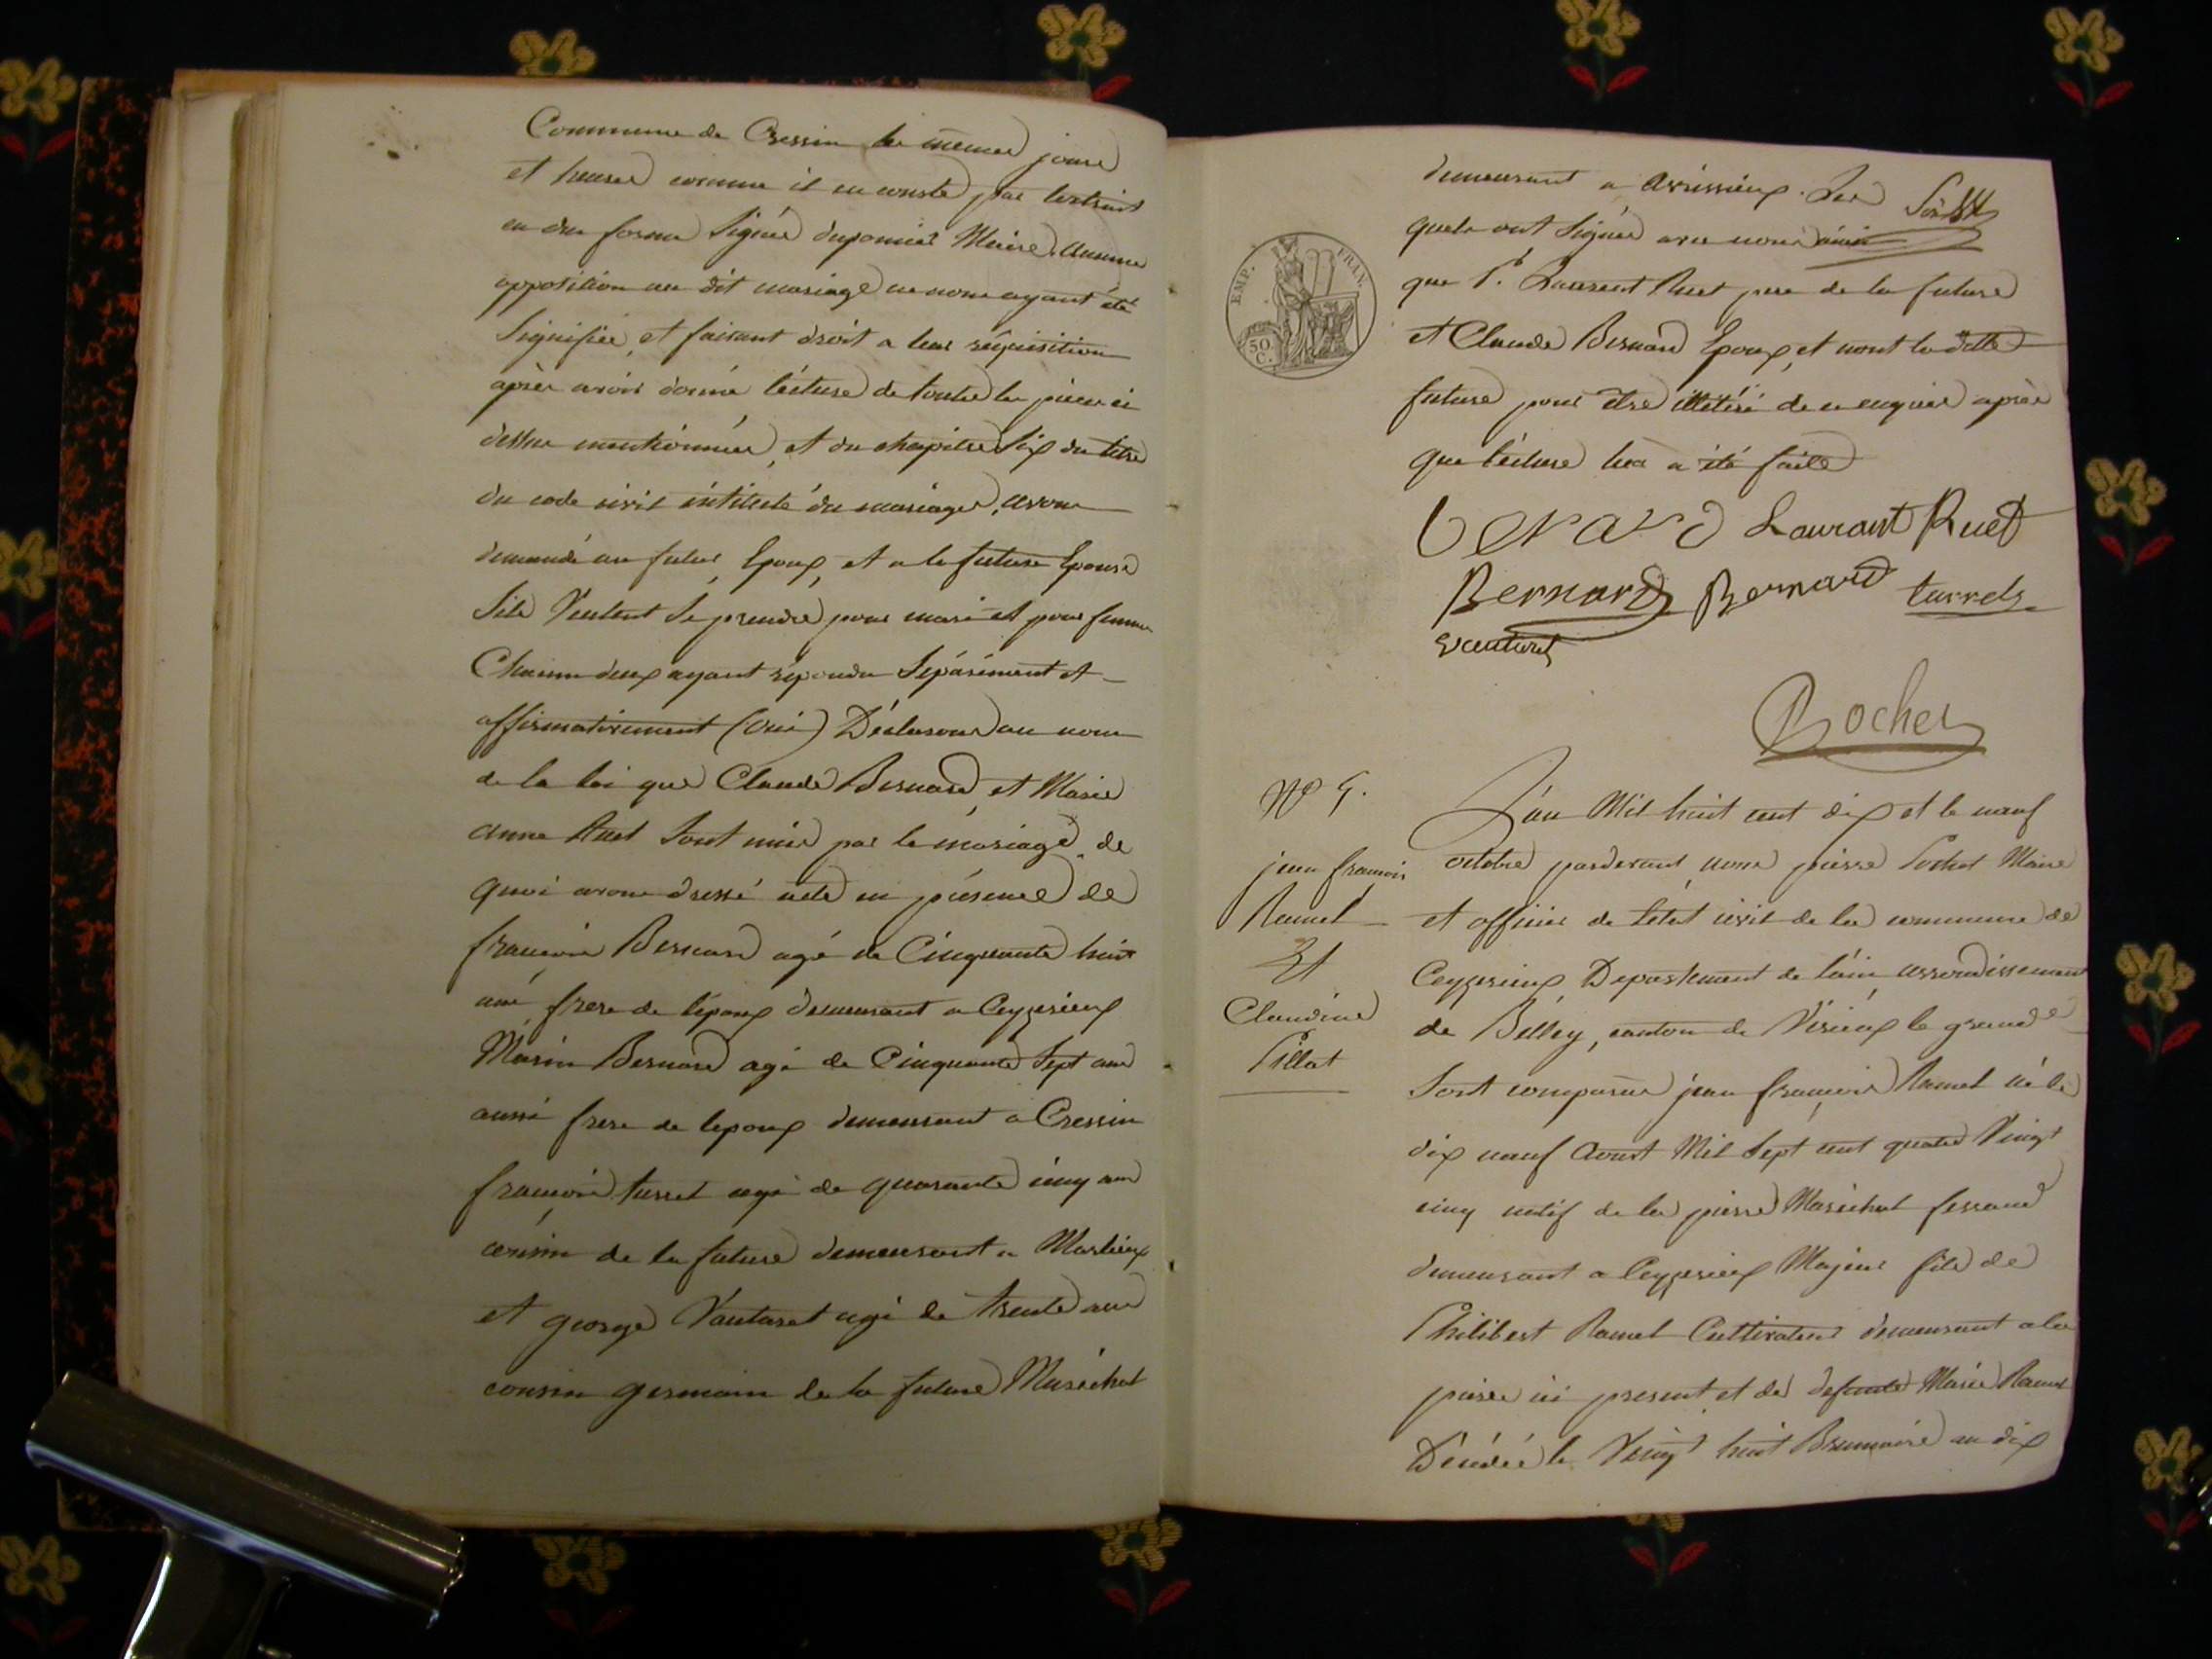 Commune de Cressin les memes jours
et heures comme il en conste par lextrait
en due forme Signé duponcet Maire. Aucune
opposition au dit mariage ne nous ayant été
Signifiée, et faisant droit a leur réquisition
après avoir donné lécture de toutes les pieces ci
dessus mentionnées, et du chapitre Six du titre
du code civil intitulé du mariage, avons
demandé au futur Epoux, et a la future Epouse
Sils Veulent Se prendre pour mari et pour femme
Chacun deux ayant répondu Séparément et
affirmativement (oui) Déclarons au nom
de la loi que Claude Bernard, et Marie
anne Ruet Sont unis par le mariage, de
quoi avons dressé acte en présence de
francois Bernard agé de Cinquante huit
ans, frere de lépoux demeurant a Ceyzerieux
Marin Bernard agé de Cinquante Sept ans
aussi frere de lepoux demeurant a Cressin
francois turrel agé de quarante cinq ans
cousin de la future demeurant a Marlieux
et george Vautaret agé de trente ans
cousin germain de la future Maréchal
demeurant a avrissieux. Les
quels ont Signés avec nous ainsi
que S. Laurent Ruet pere de la future
et Claude Bernard Epoux, et nont la ditte
future pour etre illétéré de ce enquise après
que lécture lui a été faite
Berard Laurant Ruet
Bernard Bernard turrel
Vautaret
Rochet
EMP. FRAN.
50 C.
Nº 9.
jean francois
Ramel
Et
Claudine
Pillat
L'an Mil huit cent dix et le neuf
octobre pardevant nous pierre Rochet Maire
et officier de létat civil de la commune de
Ceyzerieux, Departement de l'ain, arrondissement
de Belley, canton de Virieux le grand
Sont comparus jean francois Ramel né le
dix neuf Aoust Mil Sept cent quatre Vingt
cinq natif de la pierre Maréchal ferrand
demeurant a Ceyzerieux Majeur fils de
Philibert Ramel Cultivateur demeurant a la
pierre ici present, et de defunte Marie Ramel
Décédée le Vingt huit Brumaire an dix